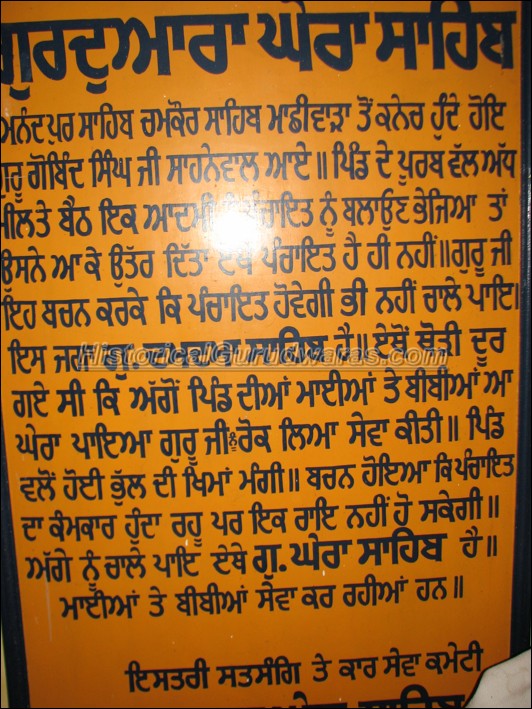 ਗੁਰਦੁਆਰਾ ਘੇਰਾ ਸਾਹਿਬ
ਅਨੰਦਪੁਰ ਸਾਹਿਬ ਚਮਕੌਰ ਸਾਹਿਬ ਮਾਛੀਵਾੜਾ ਤੋਂ ਕਨੇਚ ਹੁੰਦੇ ਹੋਇ
ਗੁਰੂ ਗੋਬਿੰਦ ਸਿੰਘ ਜੀ ਸਾਹਨੇਵਾਲ ਆਏ॥ ਪਿੰਡ ਦੇ ਪੂਰਬ ਵੱਲ ਅੱਧ
ਮੀਲ ਤੇ ਬੈਠ ਇਕ ਆਦਮੀ ਪੰਚਾਇਤ ਨੂੰ ਬਲਾਉਣ ਭੇਜਿਆ ਤਾਂ
ਉਸਨੇ ਆ ਕੇ ਉੱਤਰ ਦਿੱਤਾ ਏਥੇ ਪੰਚਾਇਤ ਹੈ ਹੀ ਨਹੀਂ॥ਗੁਰੂ ਜੀ
ਇਹ ਬਚਨ ਕਰਕੇ ਕਿ ਪੰਚਾਇਤ ਹੋਵੇਗੀ ਭੀ ਨਹੀਂ ਚਾਲੇ ਪਾਇ।
ਇਸ ਜਗਾ ਗੁ. ਸਾਹਿਬ ਹੈ॥ ਏਥੋਂ ਥੋੜੀ ਦੂਰ
HistoricalGurudwaras.com
ਗਏ ਸੀ ਕਿ ਅੱਗੋਂ ਪਿੰਡ ਦੀਆਂ ਮਾਈਆਂ ਤੇ ਬੀਬੀਆਂ ਆ
ਘੇਰਾ ਪਾਇਆ ਗੁਰੂ ਜੀ ਨੂੰ ਰੋਕ ਲਿਆ ਸੇਵਾ ਕੀਤੀ॥ ਪਿੰਡ
ਵਲੋਂ ਹੋਈ ਭੁੱਲ ਦੀ ਖਿਮਾਂ ਮੰਗੀ॥ ਬਚਨ ਹੋਇਆ ਕਿ ਪੰਚਾਇਤ
ਦਾ ਕੰਮਕਾਰ ਹੁੰਦਾ ਰਹੂ ਪਰ ਇਕ ਰਾਇ ਨਹੀਂ ਹੋ ਸਕੇਗੀ॥
ਅੱਗੇ ਨੂੰ ਚਾਲੇ ਪਾਇ ਏਥੇ ਗੁ. ਘੇਰਾ ਸਾਹਿਬ ਹੈ॥
ਮਾਈਆਂ ਤੇ ਬੀਬੀਆਂ ਸੇਵਾ ਕਰ ਰਹੀਆਂ ਹਨ॥
ਇਸਤਰੀ ਸਤਸੰਗਿ ਤੇ ਕਾਰ ਸੇਵਾ ਕਮੇਟੀ